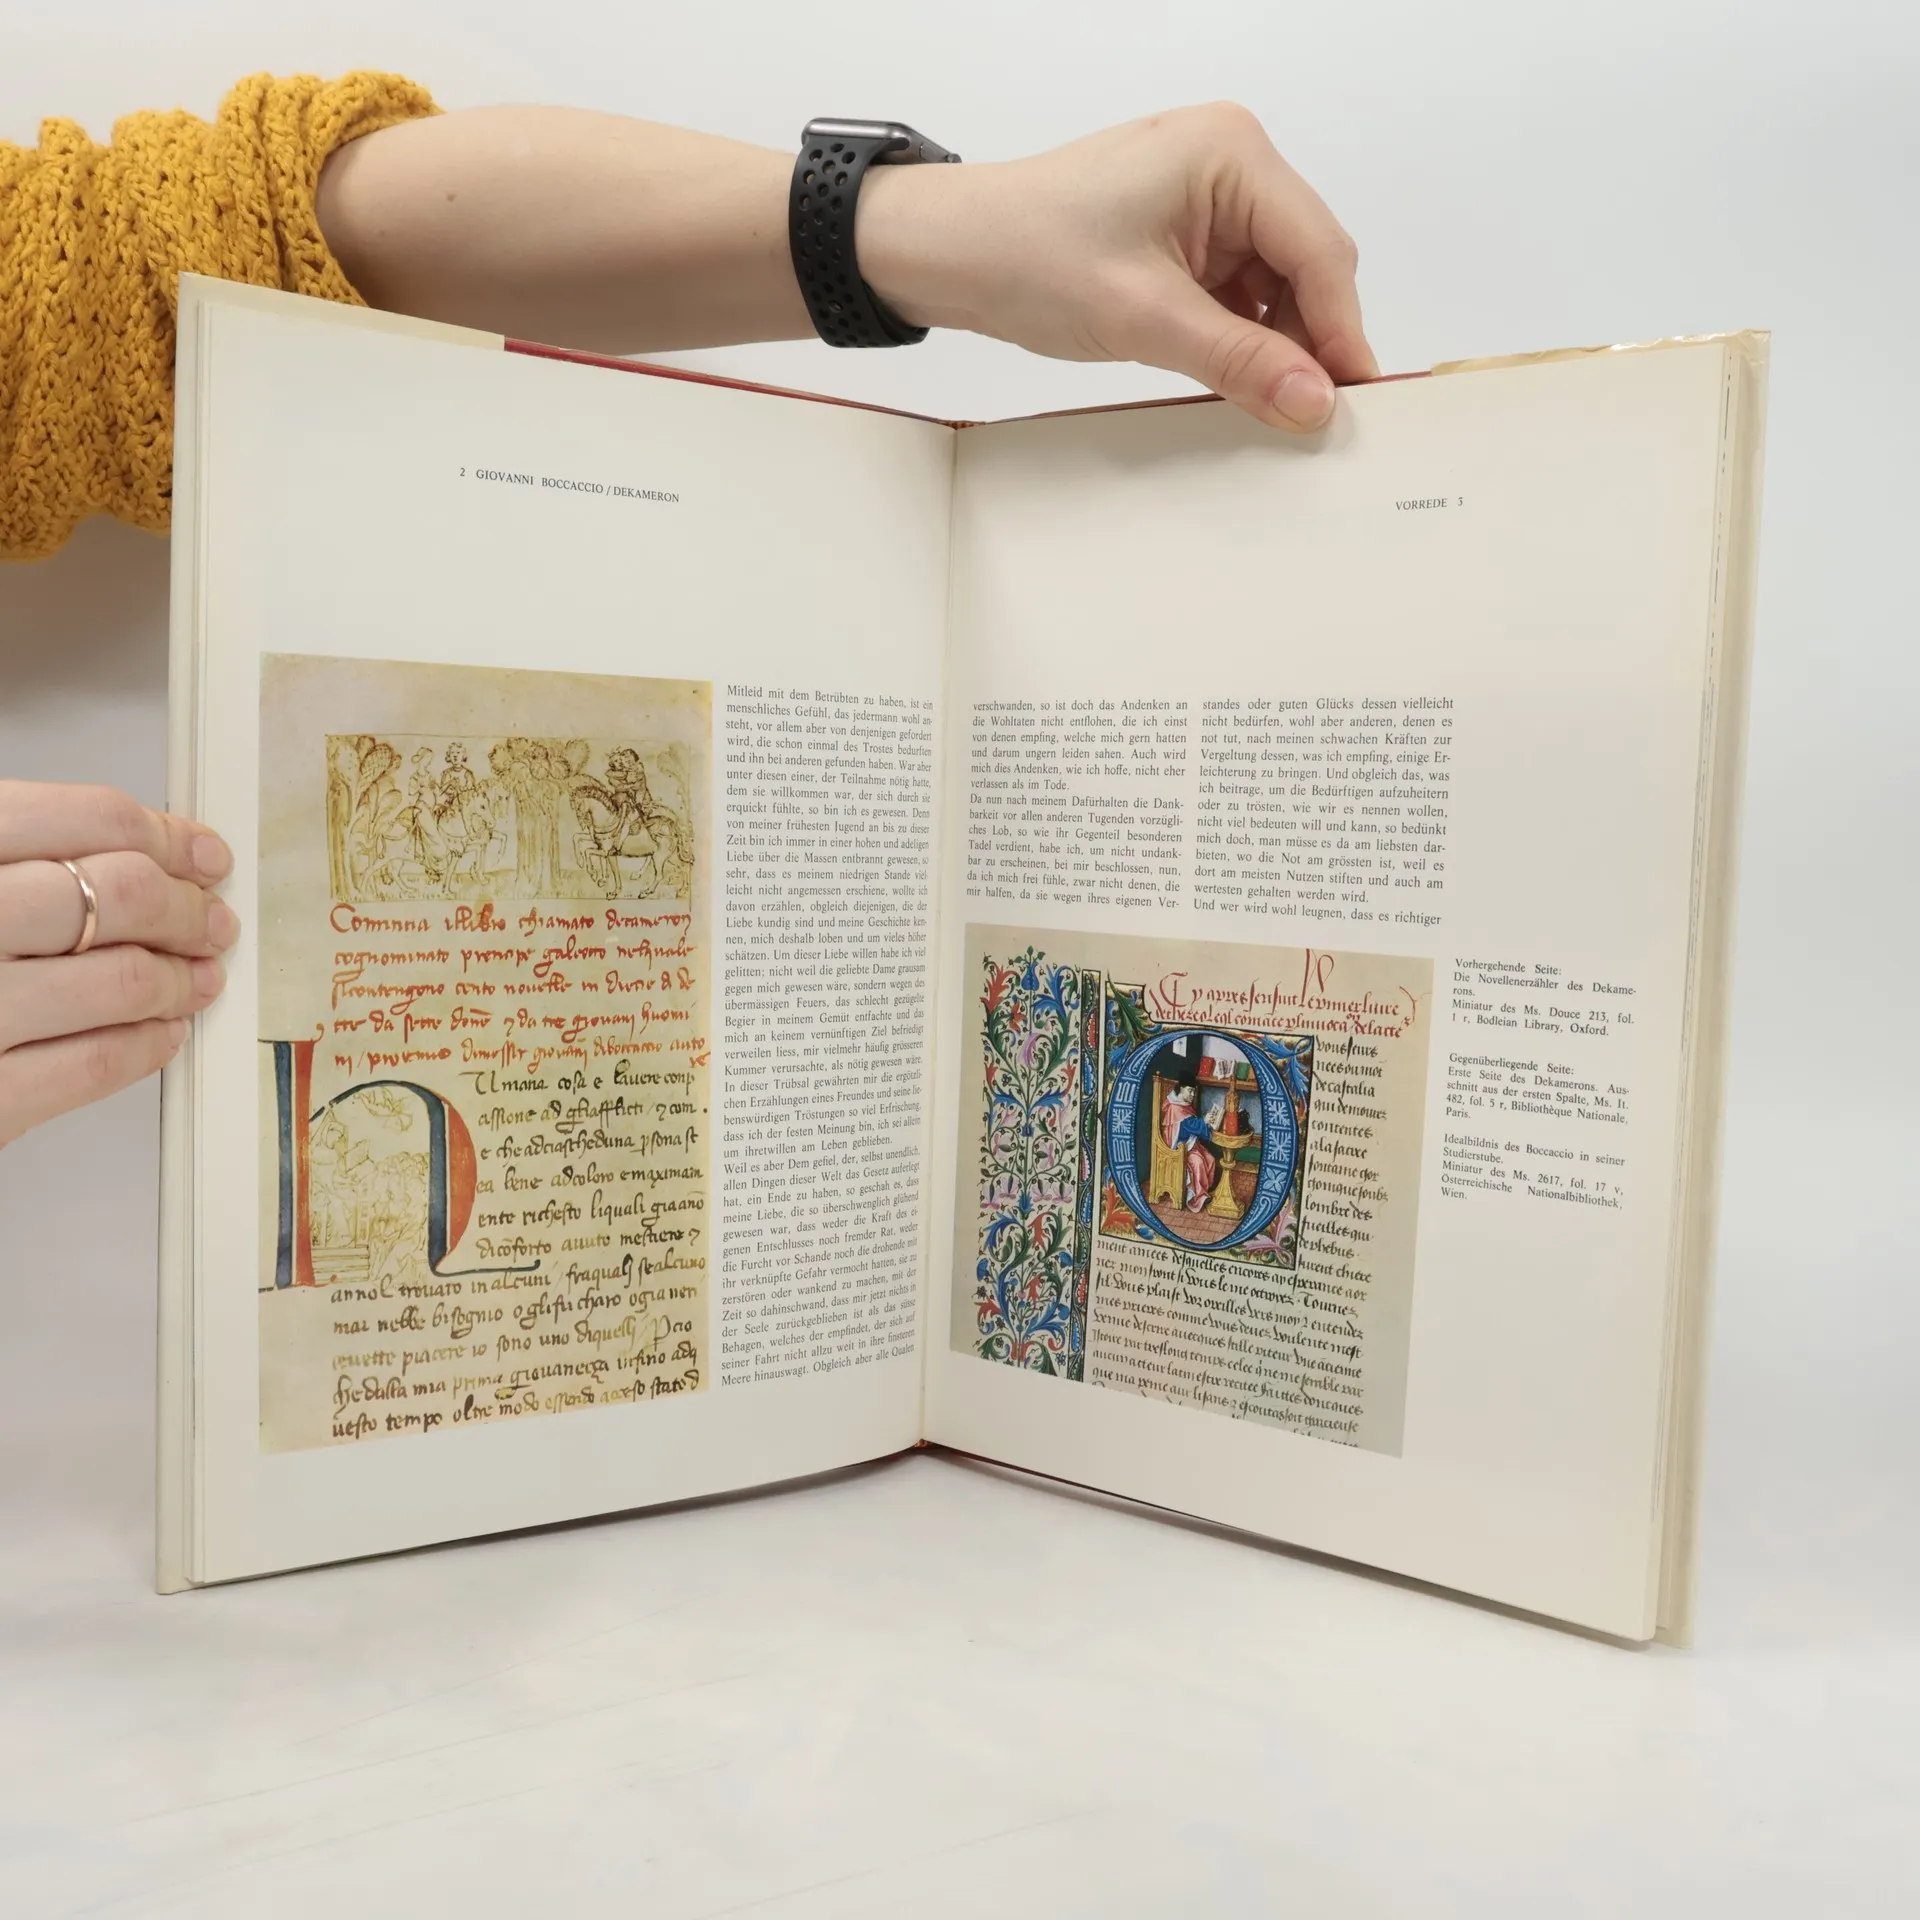 2 GIOVANNI BOCCACCIO / DEKAMERON
Comincia il libro chiamato decameron
cognominato prencipe galeotto nelquale
si contengono cento novelle in diece di de
tte da sette donne 7 da tre giovanj huomi
nj / proemio
Umana cosa e lavere conp
assione ad gliafflicti / 7 com
e che adciascheduna psona st
ea bene adcoloro e maximam
ente richesto liquali gia ano
di coforto avuto mestiere 7
anno l trovato in alcuni / fraqualj se alcuno
mai nebbe bisogno o gli fu charo o gia nen
cevette piacere io sono uno di quellj / Pcio
che dalla mia prima giovanezza infino adq
uesto tempo oltre modo essendo acceso stato d
Mitleid mit dem Betrübten zu haben, ist ein
menschliches Gefühl, das jedermann wohl an-
steht, vor allem aber von denjenigen gefordert
wird, die schon einmal des Trostes bedurften
und ihn bei anderen gefunden haben. War aber
unter diesen einer, der Teilnahme nötig hatte,
dem sie willkommen war, der sich durch sie
erquickt fühlte, so bin ich es gewesen. Denn
von meiner frühesten Jugend an bis zu dieser
Zeit bin ich immer in einer hohen und adeligen
Liebe über die Massen entbrannt gewesen, so
sehr, dass es meinem niedrigen Stande viel-
leicht nicht angemessen erschiene, wollte ich
davon erzählen, obgleich diejenigen, die der
Liebe kundig sind und meine Geschichte ken-
nen, mich deshalb loben und um vieles höher
schätzen. Um dieser Liebe willen habe ich viel
gelitten; nicht weil die geliebte Dame grausam
gegen mich gewesen wäre, sondern wegen des
übermässigen Feuers, das schlecht gezügelte
Begier in meinem Gemüt entfachte und das
mich an keinem vernünftigen Ziel befriedigt
verweilen liess, mir vielmehr häufig grösseren
Kummer verursachte, als nötig gewesen wäre.
In dieser Trübsal gewährten mir die ergötzli-
chen Erzählungen eines Freundes und seine lie-
benswürdigen Tröstungen so viel Erfrischung,
dass ich der festen Meinung bin, ich sei allein
um ihretwillen am Leben geblieben.
Weil es aber Dem gefiel, der, selbst unendlich,
allen Dingen dieser Welt das Gesetz auferlegt
hat, ein Ende zu haben, so geschah es, dass
meine Liebe, die so überschwenglich glühend
gewesen war, dass weder die Kraft des ei-
genen Entschlusses noch fremder Rat, weder
die Furcht vor Schande noch die drohende mit
ihr verknüpfte Gefahr vermocht hatten, sie zu
zerstören oder wankend zu machen, mit der
Zeit so dahinschwand, dass mir jetzt nichts in
der Seele zurückgeblieben ist als das süsse
Behagen, welches der empfindet, der sich auf
seiner Fahrt nicht allzu weit in ihre finsteren
Meere hinauswagt. Obgleich aber alle Qualen
VORREDE 3
verschwanden, so ist doch das Andenken an
die Wohltaten nicht entflohen, die ich einst
von denen empfing, welche mich gern hatten
und darum ungern leiden sahen. Auch wird
mich dies Andenken, wie ich hoffe, nicht eher
verlassen als im Tode.
Da nun nach meinem Dafürhalten die Dank-
barkeit vor allen anderen Tugenden vorzügli-
ches Lob, so wie ihr Gegenteil besonderen
Tadel verdient, habe ich, um nicht undank-
bar zu erscheinen, bei mir beschlossen, nun,
da ich mich frei fühle, zwar nicht denen, die
mir halfen, da sie wegen ihres eigenen Ver-
standes oder guten Glücks dessen vielleicht
nicht bedürfen, wohl aber anderen, denen es
not tut, nach meinen schwachen Kräften zur
Vergeltung dessen, was ich empfing, einige Er-
leichterung zu bringen. Und obgleich das, was
ich beitrage, um die Bedürftigen aufzuheitern
oder zu trösten, wie wir es nennen wollen,
nicht viel bedeuten will und kann, so bedünkt
mich doch, man müsse es da am liebsten dar-
bieten, wo die Not am grössten ist, weil es
dort am meisten Nutzen stiften und auch am
wertesten gehalten werden wird.
Und wer wird wohl leugnen, dass es richtiger
Vorhergehende Seite:
Die Novellenerzähler des Dekame-
rons.
Miniatur des Ms. Douce 213, fol.
1 r, Bodleian Library, Oxford.
Gegenüberliegende Seite:
Erste Seite des Dekamerons. Aus-
schnitt aus der ersten Spalte, Ms. It.
482, fol. 5 r, Bibliothèque Nationale,
Paris.
Idealbildnis des Boccaccio in seiner
Studierstube.
Miniatur des Ms. 2617, fol. 17 v,
Österreichische Nationalbibliothek,
Wien.